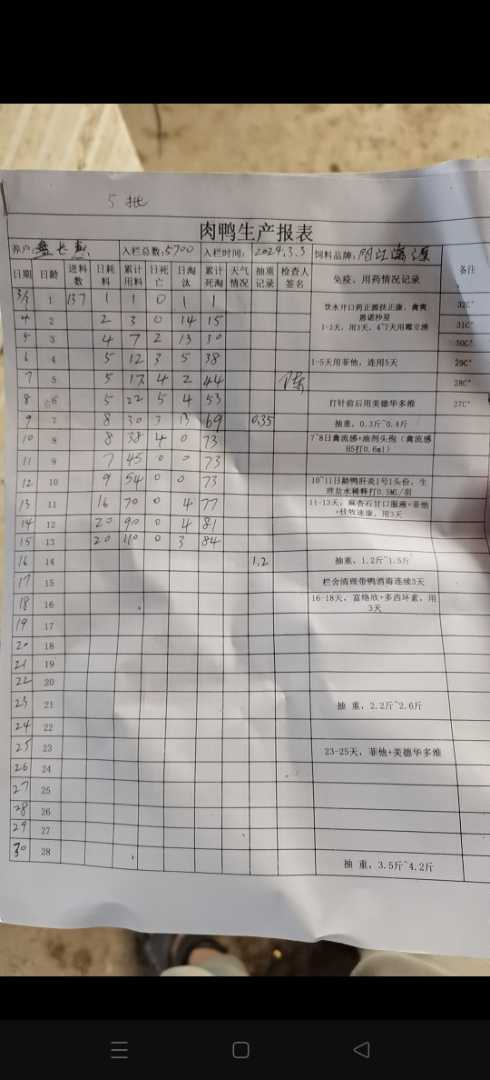 5批
肉鸭生产报表
养户: 入栏总数:5700 入栏时间: 2024.3.3 饲料品牌:阳江海
日期 日龄 进料数 日耗料 累计用料 日死亡 日淘汰 累计死淘 天气情况 抽重记录 检查人签名 免疫、用药情况记录 备注
3/3 1 137 1 1 0 1 1 饮水开口药正源扶正康、禽爽 32C°
4 2 2 3 0 14 15 恩诺沙星 1-3天,用3天,4~7天用霉立清 31C°
5 3 4 7 2 13 30 30C°
6 4 5 12 3 5 38 1-5天用菲他,连用5天 29C°
7 5 5 17 4 2 44 28C°
8 6 5 22 5 4 53 打针前后用美德华多维 27C°
9 7 8 30 3 13 69 0.35 抽重,0.3斤~0.4斤
10 8 8 38 4 0 73 7~8日禽流感+油剂头孢(禽流感H5打0.6ml)
11 9 7 45 0 0 73
12 10 9 54 0 0 73 10~11日龄鸭肝炎1号1头份,生理盐水稀释打0.5ML/羽
13 11 16 70 0 4 77 11-13天,麻杏石甘口服液+菲他+佳牧速康,用3天
14 12 20 90 0 4 81
15 13 20 110 0 3 84
16 14 1.2 抽重,1.2斤~1.5斤
17 15 栏舍清理带鸭消毒连续3天
18 16 16-18天,富络欣+多西环素,用3天
19 17
20 18
21 19
22 20
23 21 抽重,2.2斤~2.6斤
24 22
25 23 23-25天,菲他+美德华多维
26 24
27 25
28 26
29 27
30 28 抽重,3.5斤~4.2斤